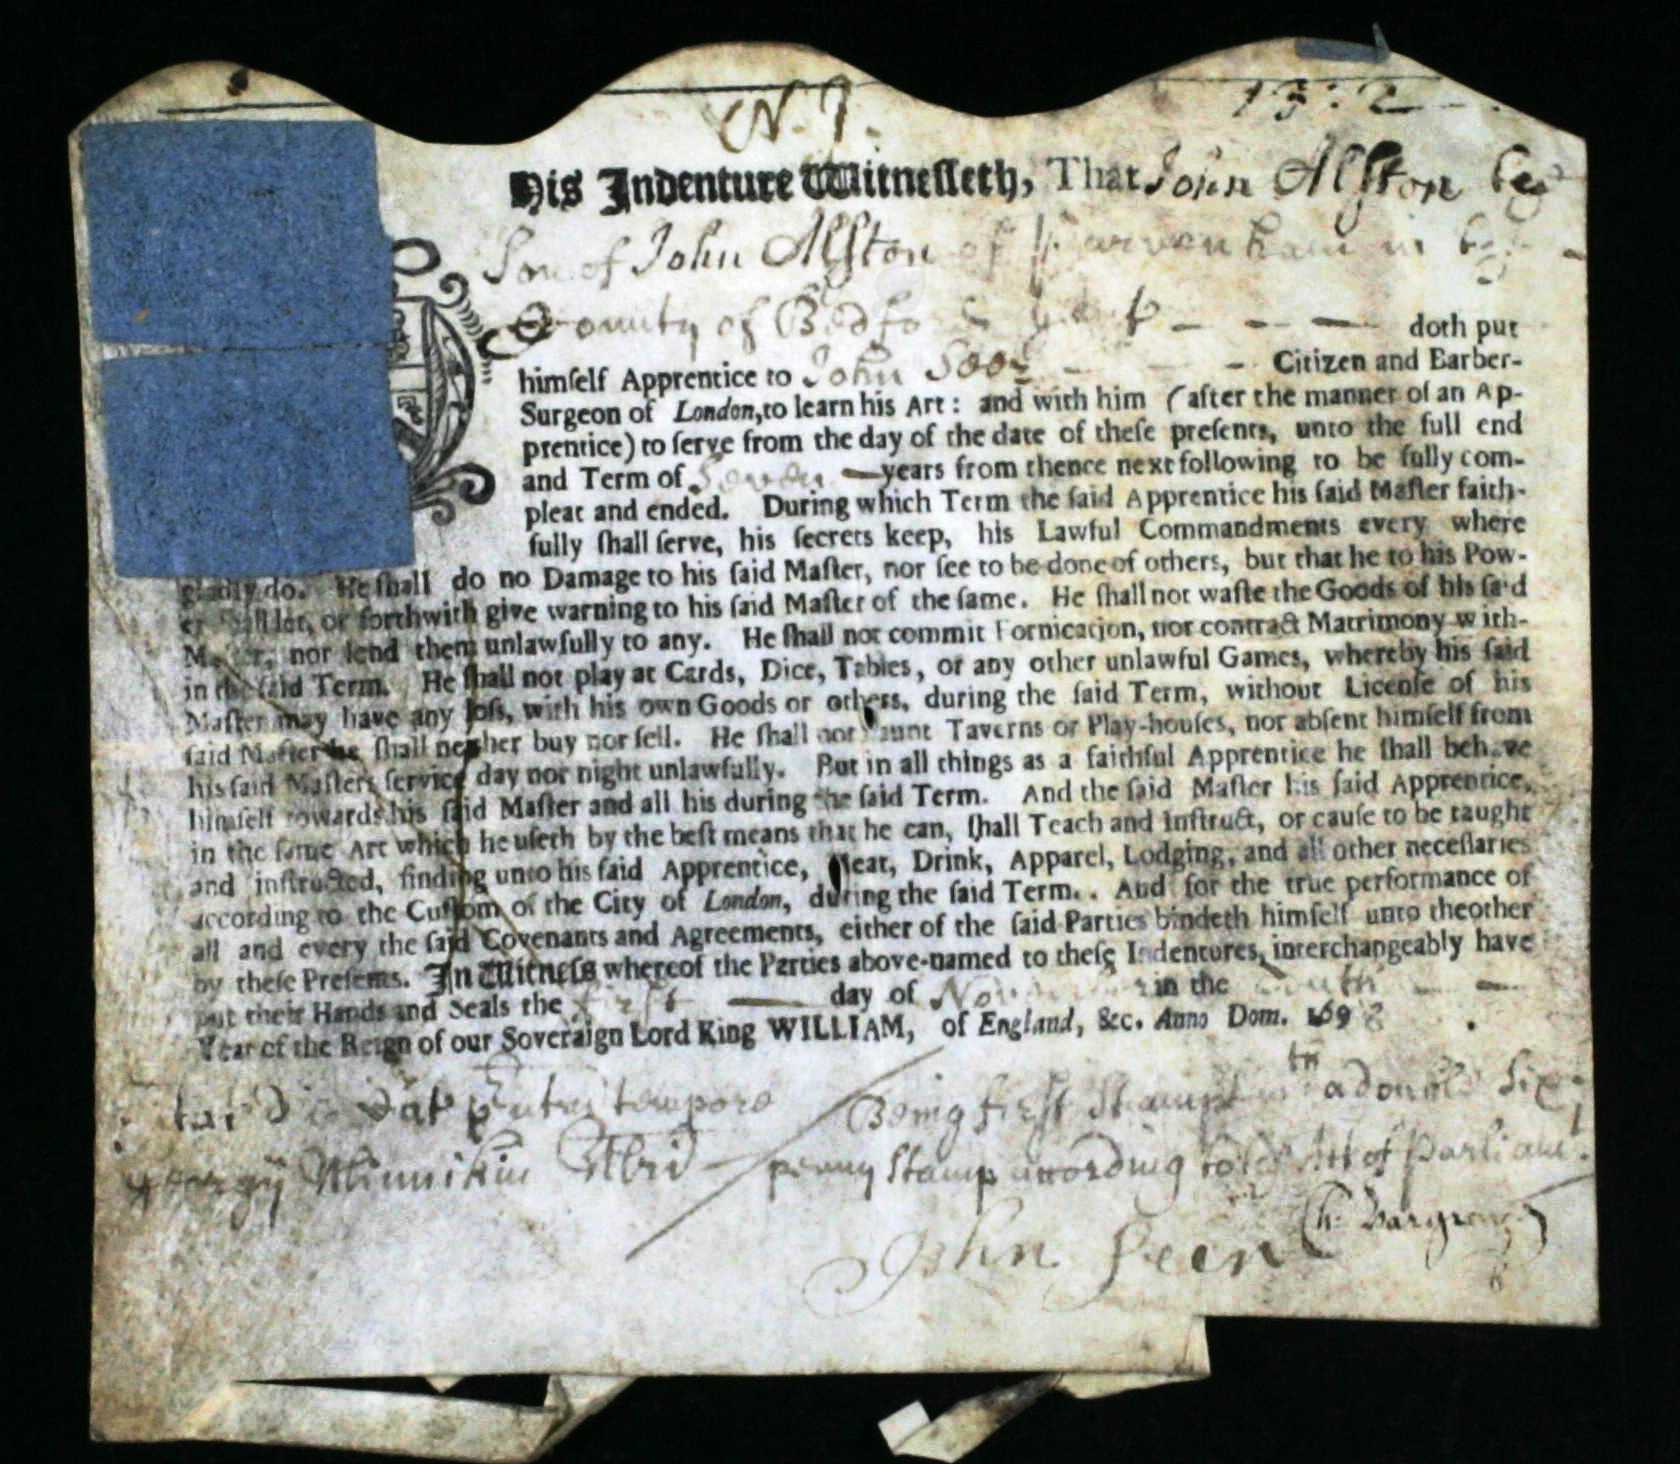 N. J.
his Indenture Witnesseth, That John Alston
Son of John Alston of in
County of Bedford doth put
himself Apprentice to John Citizen and Barber-
Surgeon of London, to learn his Art: and with him (after the manner of an Ap-
prentice) to serve from the day of the date of these presents, unto the full end
and Term of Seven years from thence next following to be fully com-
pleat and ended. During which Term the said Apprentice his said Master faith-
fully shall serve, his secrets keep, his Lawful Commandments every where
gladly do. He shall do no Damage to his said Master, nor see to be done of others, but that he to his Pow-
er shall let, or forthwith give warning to his said Master of the same. He shall not waste the Goods of his said
Master, nor lend them unlawfully to any. He shall not commit Fornication, nor contract Matrimony with-
in the said Term. He shall not play at Cards, Dice, Tables, or any other unlawful Games, whereby his said
Master may have any loss, with his own Goods or others, during the said Term, without License of his
said Master he shall neither buy nor sell. He shall not haunt Taverns or Play-houses, nor absent himself from
his said Masters service day nor night unlawfully. But in all things as a faithful Apprentice he shall behave
himself towards his said Master and all his during the said Term. And the said Master his said Apprentice,
in the same Art which he useth by the best means that he can, shall Teach and Instruct, or cause to be taught
and instructed, finding unto his said Apprentice, Meat, Drink, Apparel, Lodging, and all other necessaries
according to the Custom of the City of London, during the said Term. And for the true performance of
all and every the said Covenants and Agreements, either of the said Parties bindeth himself unto the other
by these Presents. In Witness whereof the Perties above-named to these Indentures, interchangeably have
put their Hands and Seals the first day of November in the tenth
Year of the Reign of our Soveraign Lord King WILLIAM, of England, &c. Anno Dom. 1698
tempore Being first Stampt wth a double Six
Minnikin penny Stamp according to Act of Parliamt.
John